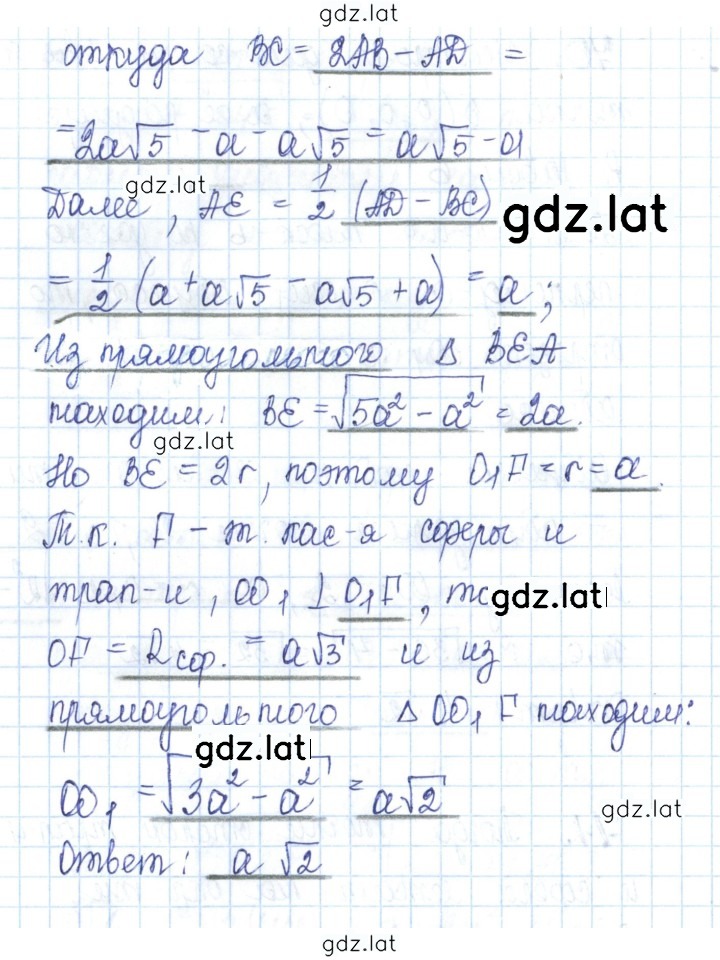 gdz.lat
откуда BC = 2AB - AD =
= 2a√5 - a - a√5 = a√5 - a
gdz.lat
Далее, AE = 1/2 (AD - BC)
gdz.lat
= 1/2 (a + a√5 - a√5 + a) = a;
Из прямоугольного Δ BEA
находим: BE = √5a² - a² = 2a.
gdz.lat
Но BE = 2r, поэтому O₁F = r = a.
Т.к. F - т. кас-я сферы и
трап-и, OO₁ ⊥ O₁F,
gdz.lat
OF = R сф. = a√3 и из
прямоугольного Δ OO₁F находим:
gdz.lat
OO₁ = √3a² - a² = a√2
gdz.lat
Ответ: a√2
gdz.lat